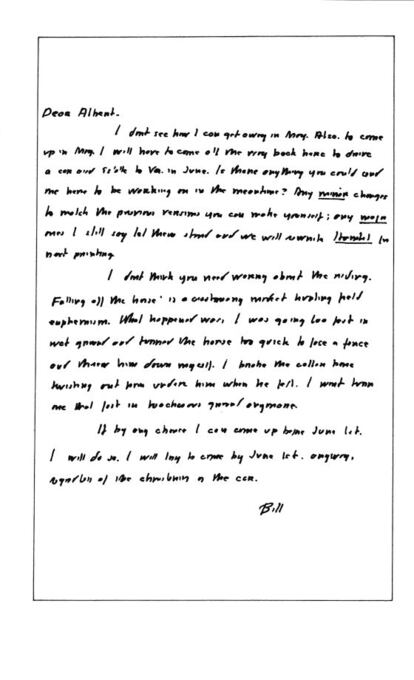 Dear Albert.
I dont see how I can get away in May. Also. to come
up in May I will have to come all the way back here to drive
a car and stuff to Va. in June. Is there anything you could send
me here to be working on in the meantime? Any minor changes
to match the previous versions you can make yourself; any major
ones I still say let them stand and we will rewrite in
next printing
I dont think you need worry about the riding.
Falling off the horse is a hunting field
euphemism. What happened was, I was going too fast in
wet ground and turned the horse too quick to face a fence
and threw him down myself. I broke the collar bone
twisting out from under him when he fell. I wont turn
one that fast in ground anymore.
If by any chance I can come up before June 1st.
I will do so. I will try to come by June 1st. anyway,
regardless of the of the car.
Bill